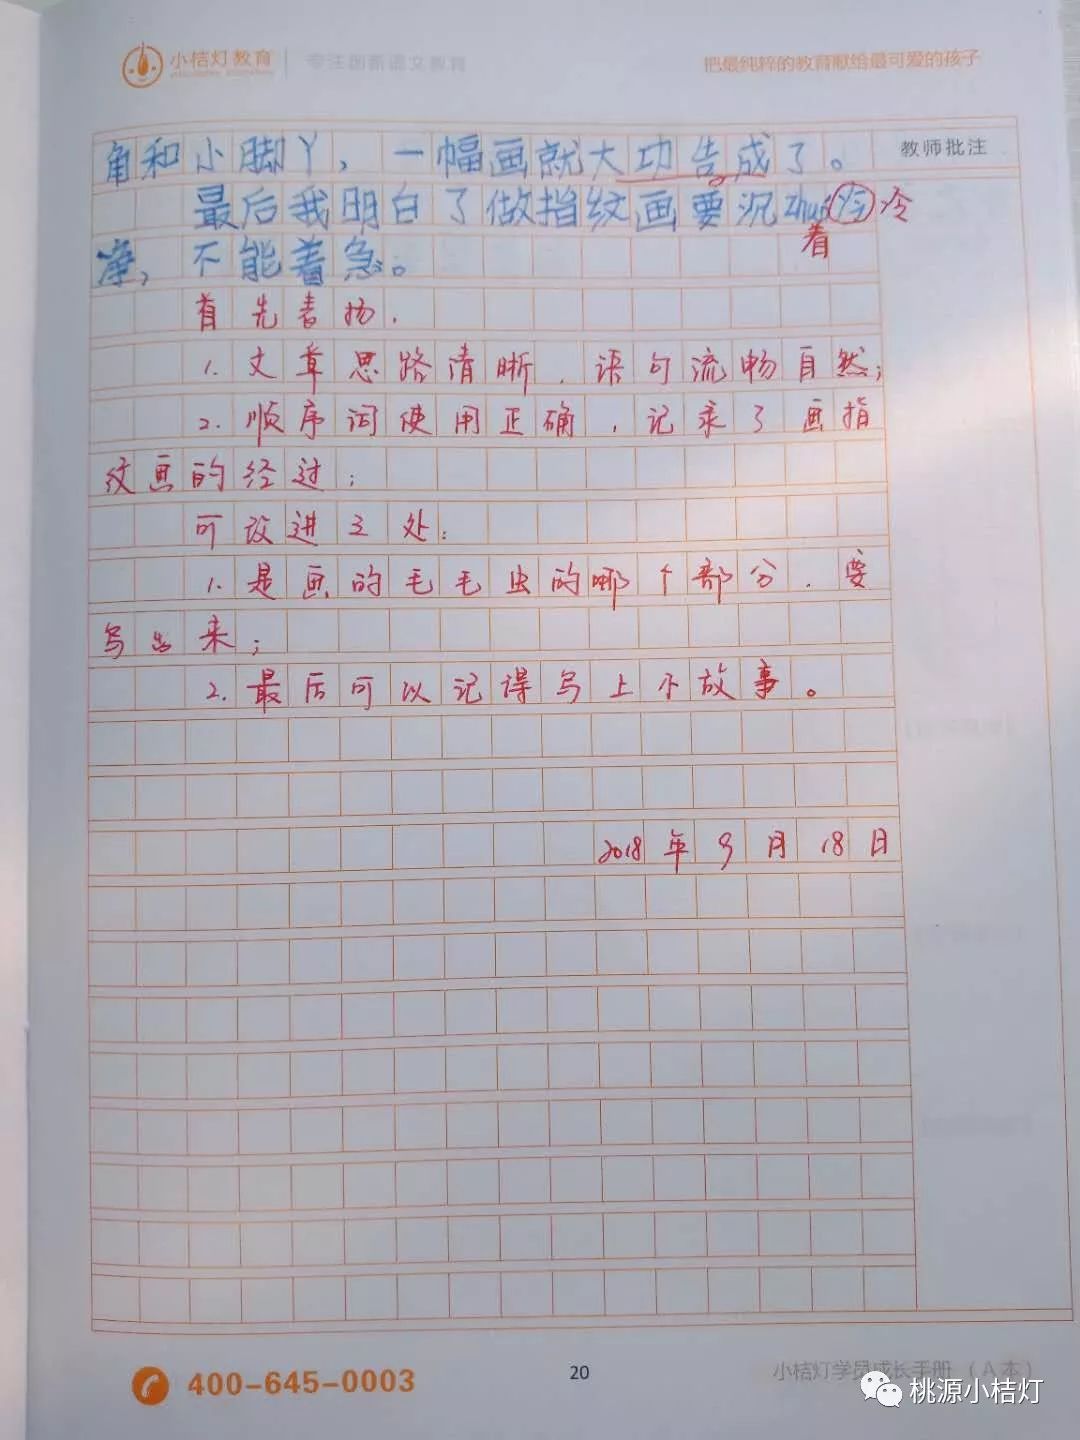 小桔灯教育 专注创新语文教育 把最纯粹的教育献给最可爱的孩子
教师批注
角和小脚丫，一幅画就大功告成了。
最后我明白了做指纹画要沉zhuó冷冷
着
净，不能着急。
首先表扬.
1.文章思路清晰，语句流畅自然;
2.顺序词使用正确，记录了画指
纹画的经过;
可改进之处:
1.是画的毛毛虫的哪个部分，要
写出来;
2.最后可以记得写上小故事。
2018年9月18日
400-645-0003
20
小桔灯学员成长手册（A本）
桃源小桔灯